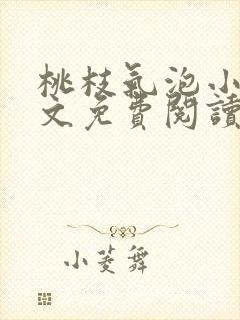 桃枝氣泡小
文免費閱讀
小菱舞